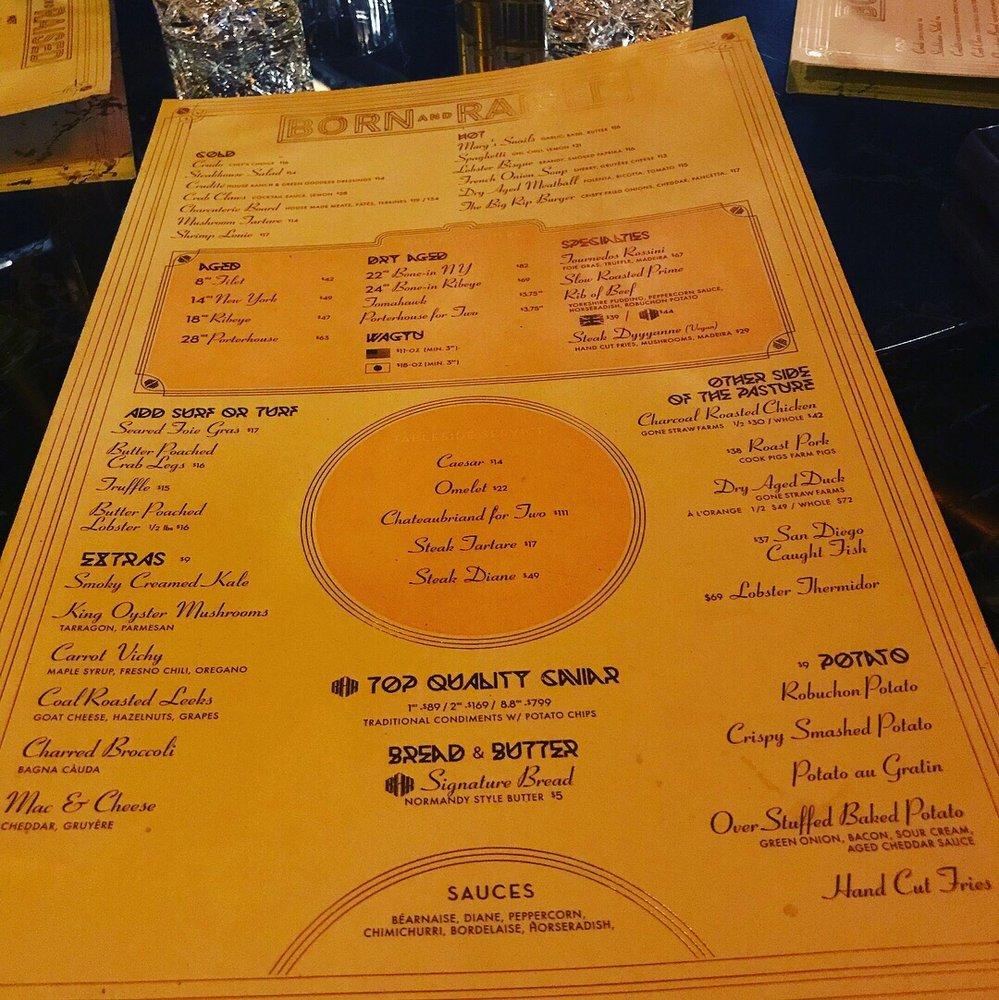 BORN AND RAI
COLD
Crudo CHEF'S CHOICE $16
Steakhouse Salad $14
Crudité HOUSE RANCH & GREEN GODDESS DRESSINGS $14
Crab Claws COCKTAIL SAUCE, LEMON $28
Charcuterie Board HOUSE MADE MEATS, PATÉS, TERRINES $19 / $34
Mushroom Tartare $14
Shrimp Louie $17
HOT
Mary's Snails GARLIC, BASIL, BUTTER $16
Spaghetti UNI, CHILI, LEMON $21
Lobster Bisque BRANDY, SMOKED PAPRIKA $16
French Onion Soup SHERRY, GRUYÈRE CHEESE $13
Dry Aged Meatball POLENTA, RICOTTA, TOMATO $15
The Big Rip Burger CRISPY FRIED ONIONS, CHEDDAR, PANCETTA, $17
AGED
8oz Filet $42
14oz New York $49
18oz Ribeye $47
28oz Porterhouse $63
DRY AGED
22oz Bone-in NY $82
24oz Bone-in Ribeye $69
Tomahawk $3.75oz
Porterhouse for Two $3.75oz
WAGYU
$11-OZ (MIN. 3oz)
$18-OZ (MIN. 3oz)
SPECIALTIES
Tournedos Rossini
FOIE GRAS, TRUFFLE, MADEIRA $67
Slow Roasted Prime
Rib of Beef
YORKSHIRE PUDDING, PEPPERCORN SAUCE,
HORSERADISH, ROBUCHON POTATO
$39 / $44
Steak Dyyyanne (Vegan)
HAND CUT FRIES, MUSHROOMS, MADEIRA $29
ADD SURF OR TURF
Seared Foie Gras $17
Butter Poached
Crab Legs $16
Truffle $15
Butter Poached
Lobster 1/2 lbs $16
EXTRAS $9
Smoky Creamed Kale
King Oyster Mushrooms
TARRAGON, PARMESAN
Carrot Vichy
MAPLE SYRUP, FRESNO CHILI, OREGANO
Coal Roasted Leeks
GOAT CHEESE, HAZELNUTS, GRAPES
Charred Broccoli
BAGNA CÀUDA
Mac & Cheese
CHEDDAR, GRUYÈRE
Caesar $14
Omelet $22
Chateaubriand for Two $111
Steak Tartare $17
Steak Diane $49
BAR TOP QUALITY CAVIAR
1oz-$89 / 2oz-$169 / 8.8oz-$799
TRADITIONAL CONDIMENTS W/ POTATO CHIPS
BREAD & BUTTER
BAR Signature Bread
NORMANDY STYLE BUTTER $5
OTHER SIDE
OF THE PASTURE
Charcoal Roasted Chicken
GONE STRAW FARMS 1/2 $30 / WHOLE $42
$38 Roast Pork
COOK PIGS FARM PIGS
Dry Aged Duck
GONE STRAW FARMS
À L'ORANGE 1/2 $49 / WHOLE $72
$37 San Diego
Caught Fish
$69 Lobster Thermidor
$9 POTATO
Robuchon Potato
Crispy Smashed Potato
Potato au Gratin
Over Stuffed Baked Potato
GREEN ONION, BACON, SOUR CREAM,
AGED CHEDDAR SAUCE
Hand Cut Fries
SAUCES
BÉARNAISE, DIANE, PEPPERCORN,
CHIMICHURRI, BORDELAISE, HORSERADISH,